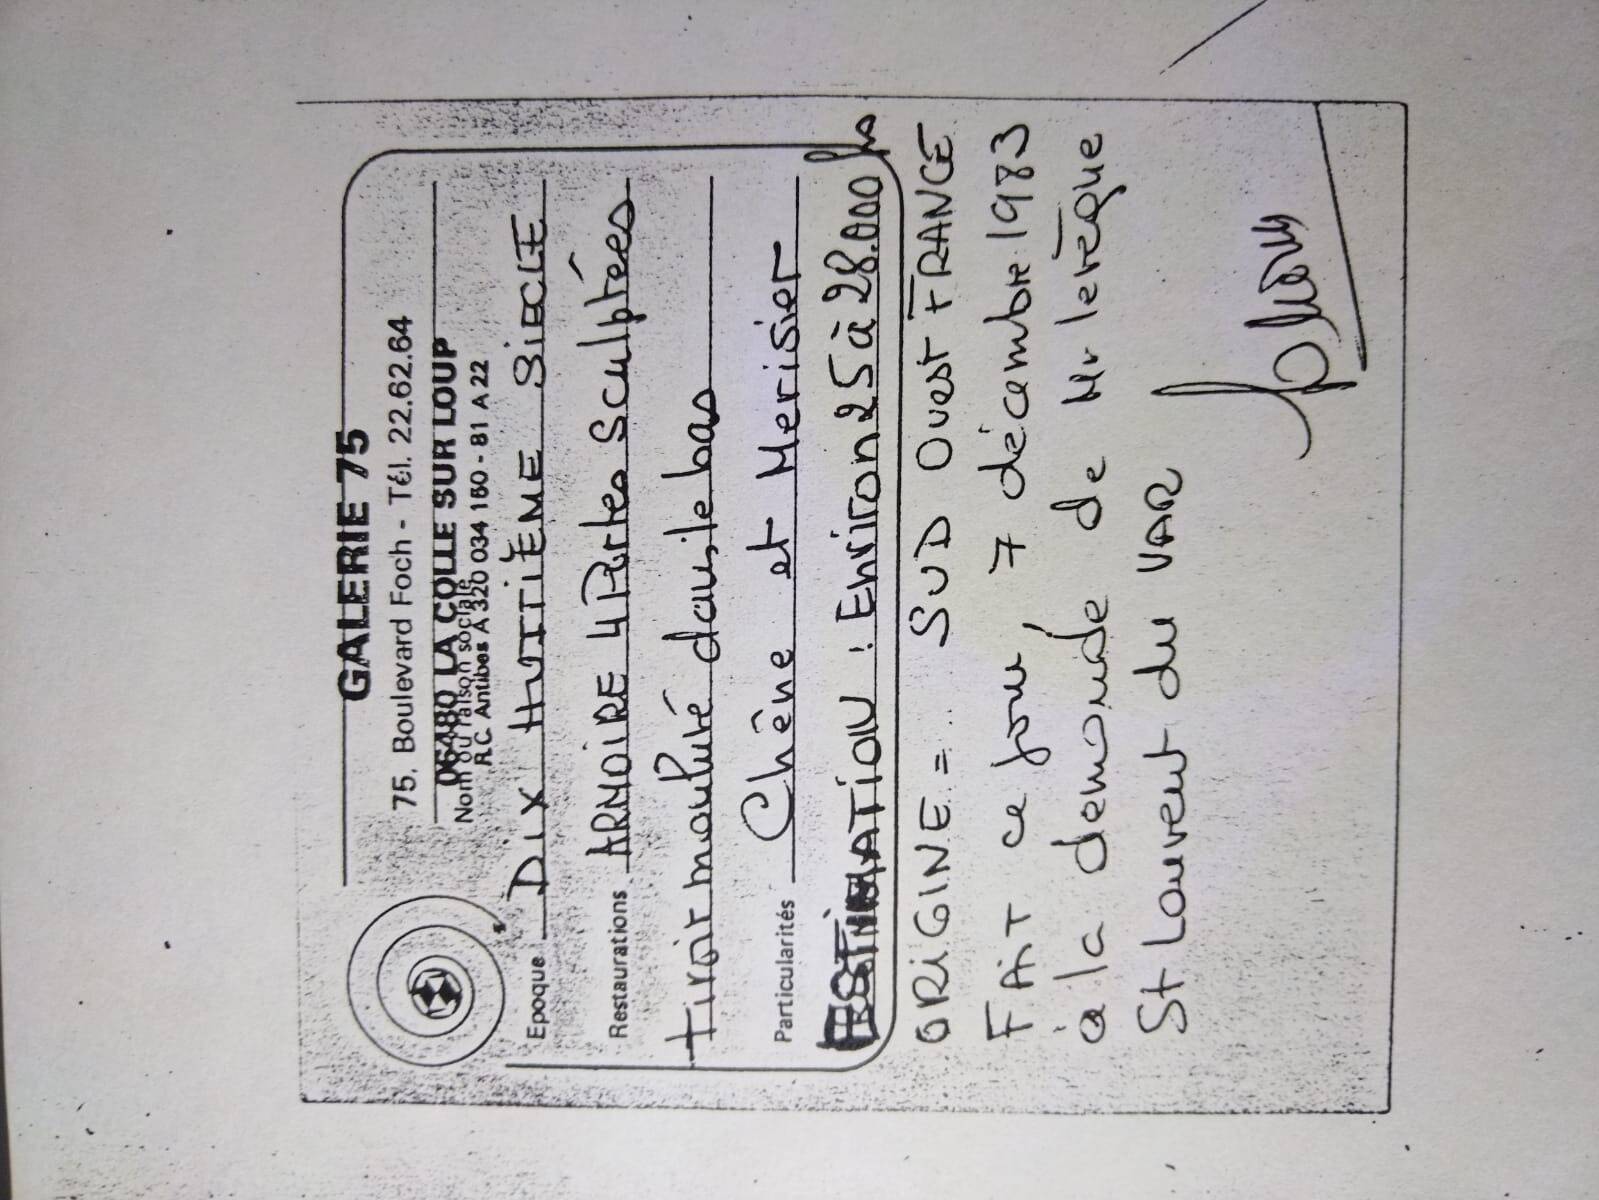 GALERIE 75
75, Boulevard Foch - Tél. 22.62.64
06480 LA COLLE SUR LOUP
Nom ou raison sociale
R.C. Antibes A 320 034 160 - 81 A 22
Epoque DIX HUTIÈME SIECLE
Restaurations ARMOIRE 4 Portes Sculptées
tiroir mouluré dans le bas
Particularités Chêne et Merisier
ESTIMATION : Environ 25 à 28.000 frs
ORIGINE = SUD OUEST FRANCE
FAIT ce jour 7 décembre 1983
à la demande de Mr levêque
St Laurent du VAR